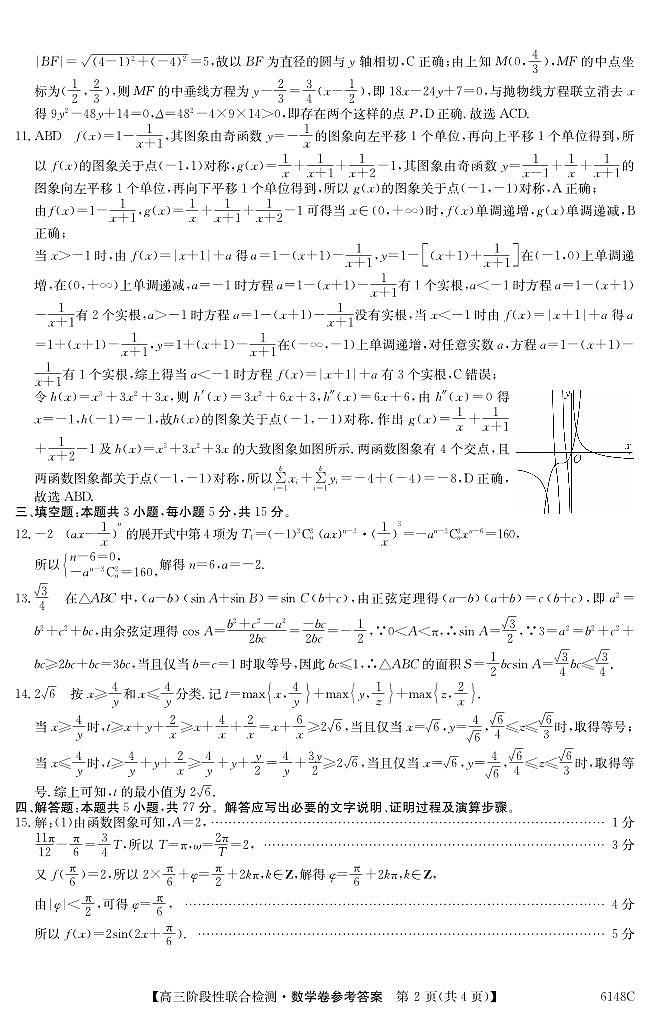 |BF|=√((4−1)²+(−4)²)=5,故以 BF 为直径的圆与 y 轴相切,C 正确;由上知 M(0,4/3),MF 的中点坐
标为(1/2,2/3),则 MF 的中垂线方程为 y−2/3=3/4(x−1/2),即 18x−24y+7=0,与抛物线方程联立消去 x
得 9y²−48y+14=0,Δ=48²−4×9×14>0,即存在两个这样的点 P,D 正确. 故选 ACD.
11. ABD f(x)=1−1/(x+1),其图象由奇函数 y=−1/x 的图象向左平移 1 个单位,再向上平移 1 个单位得到,所
以 f(x)的图象关于点(−1,1)对称,g(x)=1/x+1/(x+1)+1/(x+2)−1,其图象由奇函数 y=1/(x−1)+1/x+1/(x+1)的
图象向左平移 1 个单位,再向下平移 1 个单位得到,所以 g(x)的图象关于点(−1,−1)对称,A 正确;
由f(x)=1−1/(x+1),g(x)=1/x+1/(x+1)+1/(x+2)−1 可得当 x∈(0,+∞)时,f(x)单调递增,g(x)单调递减,B
正确;
当 x>−1 时,由 f(x)=|x+1|+a 得 a=1−(x+1)−1/(x+1),y=1−[(x+1)+1/(x+1)]在(−1,0)上单调递
增,在(0,+∞)上单调递减,a=−1 时方程 a=1−(x+1)−1/(x+1)有 1 个实根,a<−1 时方程 a=1−(x+1)
−1/(x+1)有 2 个实根,a>−1 时方程 a=1−(x+1)−1/(x+1)没有实根,当 x<−1 时由 f(x)=|x+1|+a 得 a
=1+(x+1)−1/(x+1),y=1+(x+1)−1/(x+1)在(−∞,−1)上单调递增,对任意实数 a,方程 a=1−(x+1)−
1/(x+1)有 1 个实根,综上得当 a<−1 时方程 f(x)=|x+1|+a 有 3 个实根,C 错误;
令 h(x)=x³+3x²+3x,则 h′(x)=3x²+6x+3,h″(x)=6x+6,由 h″(x)=0 得
x=−1,h(−1)=−1,故h(x)的图象关于点(−1,−1)对称. 作出 g(x)=1/x+1/(x+1)
+1/(x+2)−1 及 h(x)=x³+3x²+3x 的大致图象如图所示. 两函数图象有 4 个交点,且
两函数图象都关于点(−1,−1)对称,所以∑xᵢ+∑yᵢ=−4+(−4)=−8,D 正确,
故选 ABD.
y
x
O
三、填空题:本题共 3 小题,每小题 5 分,共 15 分。
12. −2 (ax−1/x)ⁿ 的展开式中第 4 项为 T₄=(−1)³C³ₙ(ax)ⁿ⁻³·(1/x)³=−aⁿ⁻³C³ₙxⁿ⁻⁶=160,
所以{n−6=0, −aⁿ⁻³C³ₙ=160,解得 n=6,a=−2.
13. √3/4 在△ABC 中,(a−b)(sin A+sin B)=sin C(b+c),由正弦定理得(a−b)(a+b)=c(b+c),即 a²=
b²+c²+bc,由余弦定理得 cos A=(b²+c²−a²)/2bc=−bc/2bc=−1/2,∵0<A<π,∴sin A=√3/2,∵3=a²=b²+c²+
bc≥2bc+bc=3bc,当且仅当 b=c=1 时取等号,因此 bc≤1,∴△ABC 的面积 S=1/2 bcsin A=√3/4 bc≤√3/4.
14. 2√6 按 x≥4/y 和 x≤4/y 分类. 记 t=max{x,4/y}+max{y,1/z}+max{z,2/x}.
当 x≥4/y 时,t≥x+y+2/x≥x+4/x+2/x=x+6/x≥2√6,当且仅当 x=√6,y=4/√6,√6/4≤z≤√6/3 时,取得等号;
当 x≤4/y 时,t≥4/y+y+2/x≥4/y+y+y/2=4/y+3y/2≥2√6,当且仅当 x=√6,y=4/√6,√6/4≤z≤√6/3 时,取得等
号. 综上可知,t 的最小值为 2√6.
四、解答题:本题共 5 小题,共 77 分。解答应写出必要的文字说明、证明过程及演算步骤。
15. 解:(1)由函数图象可知,A=2, …… 1 分
11π/12−π/6=3/4 T,所以 T=π,ω=2π/T=2, …… 3 分
又 f(π/6)=2,所以 2×π/6+φ=π/2+2kπ,k∈Z,解得 φ=π/6+2kπ,k∈Z,
由|φ|<π/2,可得 φ=π/6, …… 4 分
所以 f(x)=2sin(2x+π/6). …… 5 分
【高三阶段性联合检测·数学卷参考答案 第 2 页(共 4 页)】 6148C